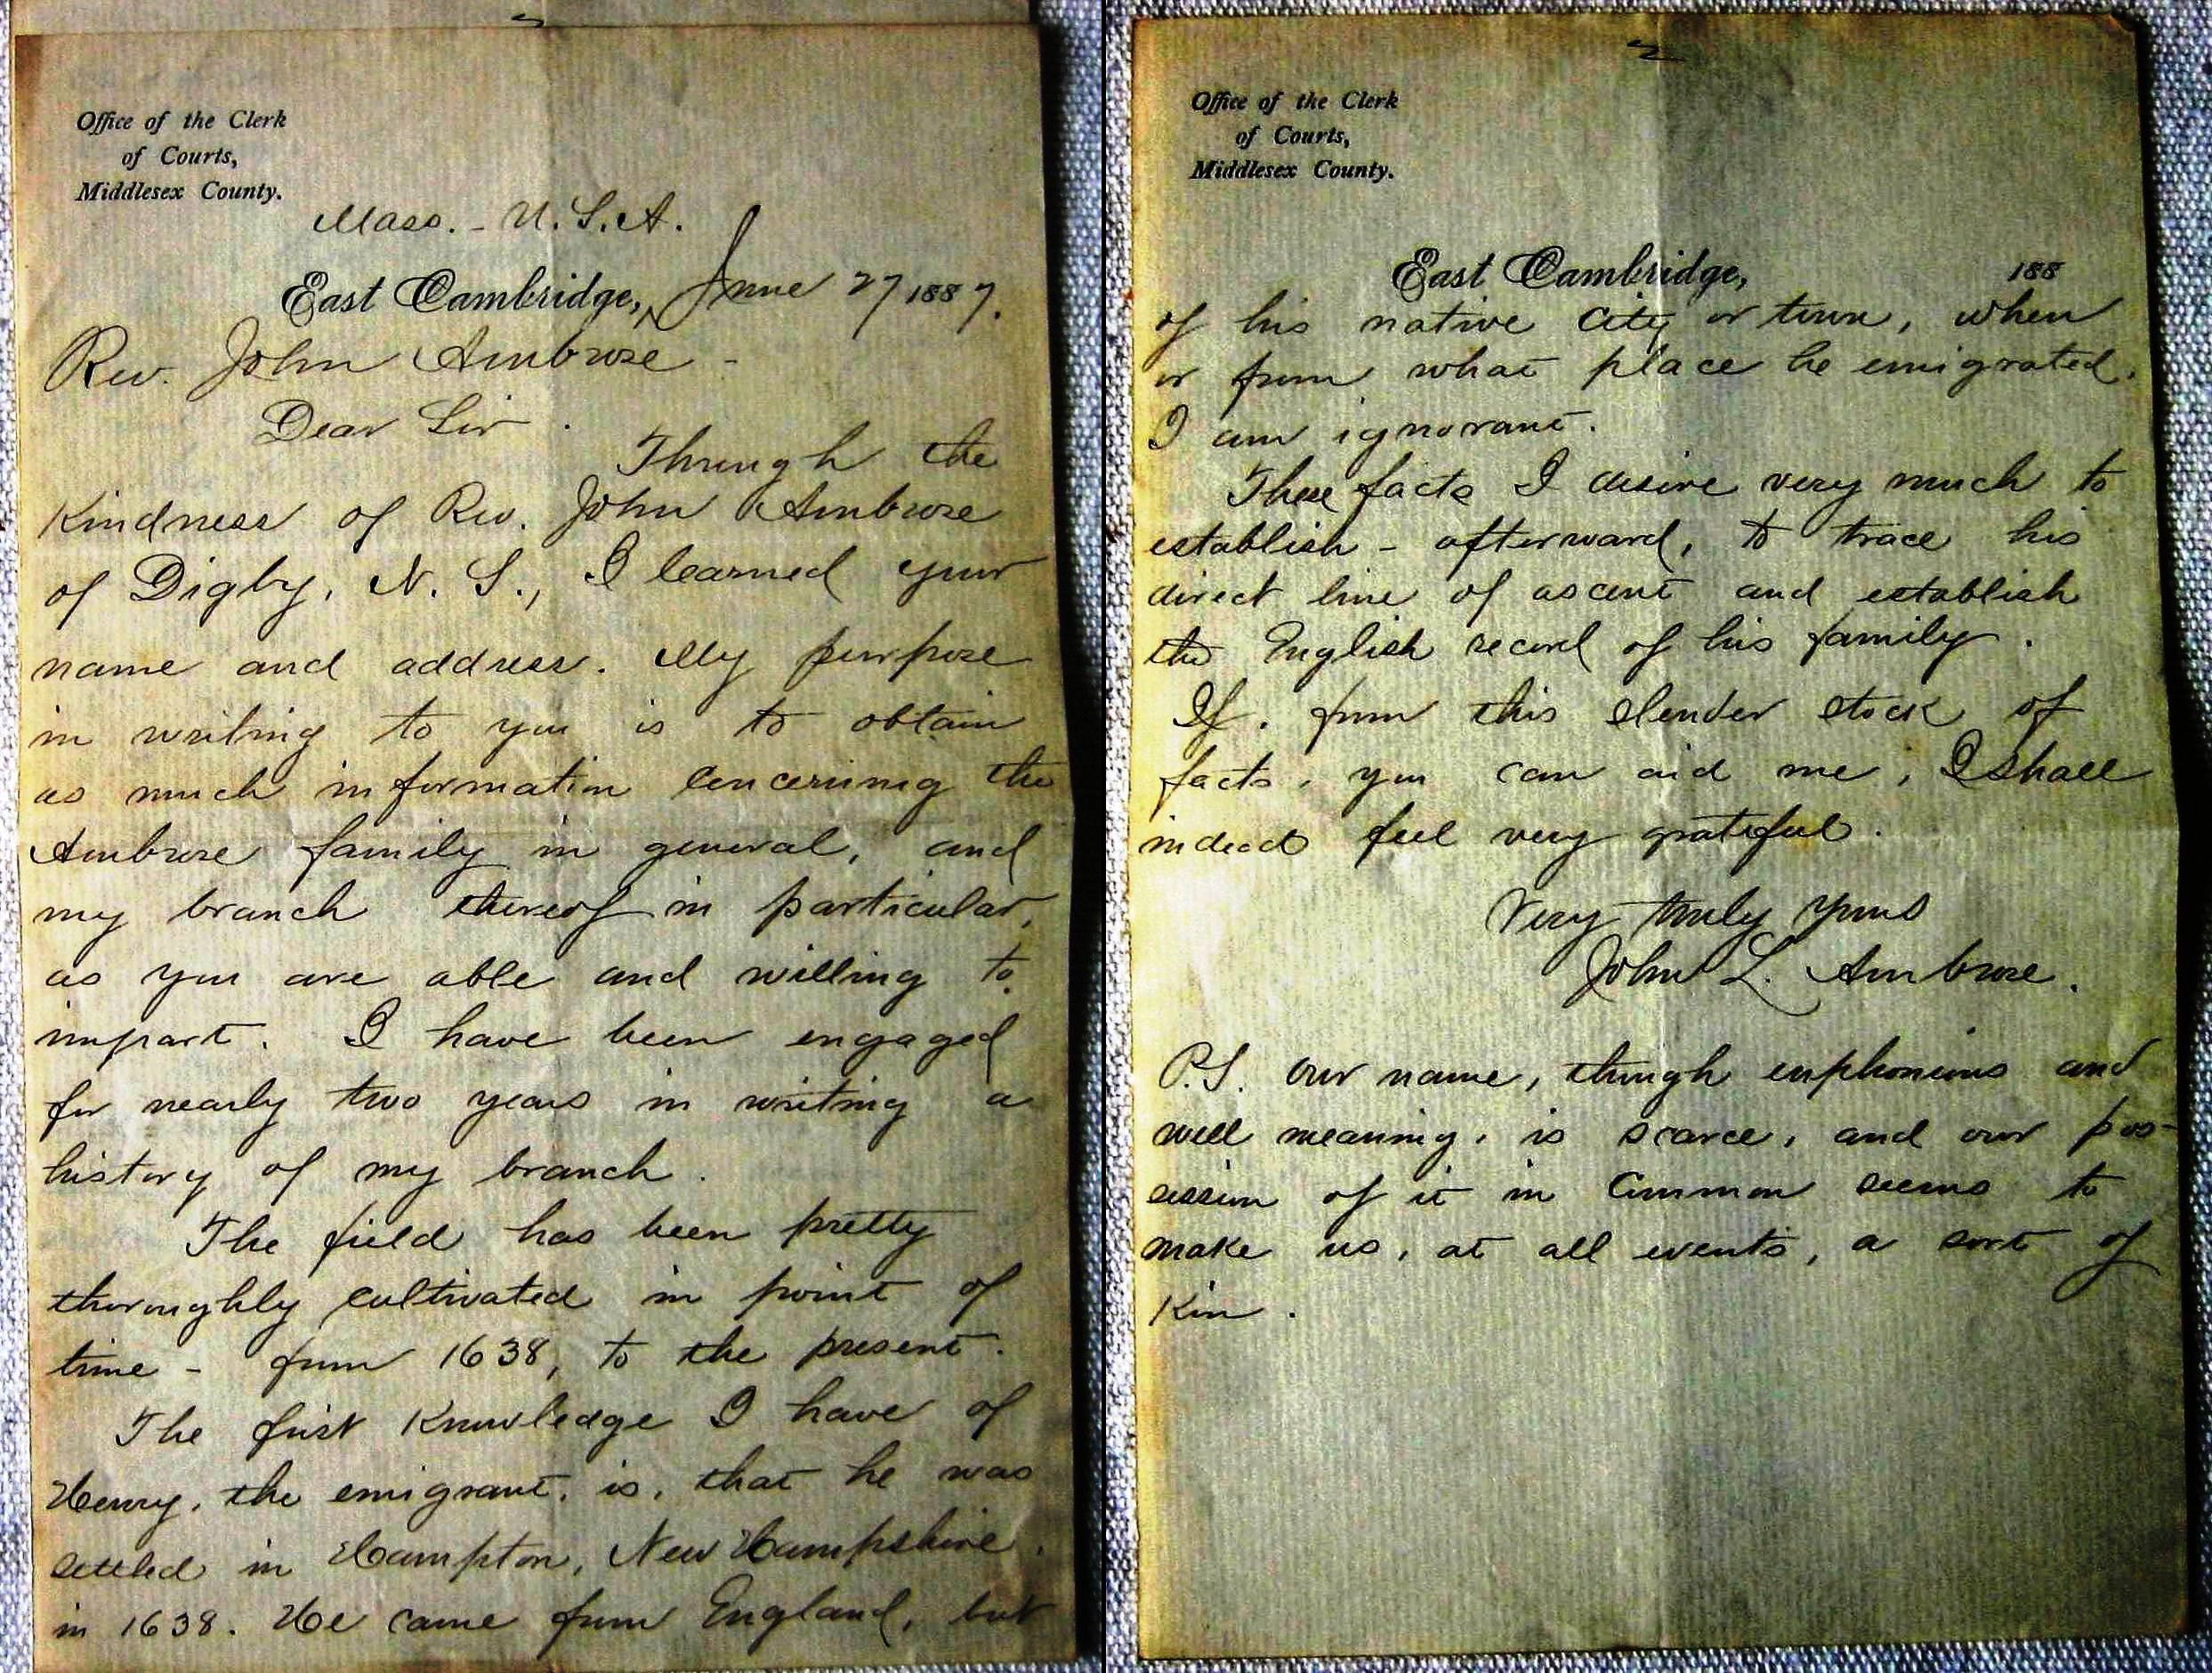 Office of the Clerk
of Courts,
Middlesex County.
Mass. - U.S.A.
East Cambridge, June 27 1887.
Rev. John Ambrose -
Dear Sir.
Through the
kindness of Rev. John Ambrose
of Digby, N. S., I learned your
name and address. My purpose
in writing to you is to obtain
as much information concerning the
Ambrose family in general, and
my branch thereof in particular,
as you are able and willing to
impart. I have been engaged
for nearly two years in writing a
history of my branch.
The field has been pretty
thoroughly cultivated in point of
time - from 1638, to the present.
The first knowledge I have of
Henry, the emigrant, is, that he was
settled in Hampton, New Hampshire,
in 1638. He came from England, but
Office of the Clerk
of Courts,
Middlesex County.
East Cambridge, 188
of his native city or town, when
or from what place he emigrated,
I am ignorant.
These facts I desire very much to
establish - afterward, to trace his
direct line of ascent and establish
the English record of his family.
If, from this slender stock of
facts, you can aid me, I shall
indeed feel very grateful.
Very truly yours
John L. Ambrose.
P.S. Our name, though euphonious and
well meaning, is scarce, and our pos-
session of it in common seems to
make us, at all events, a sort of
kin.